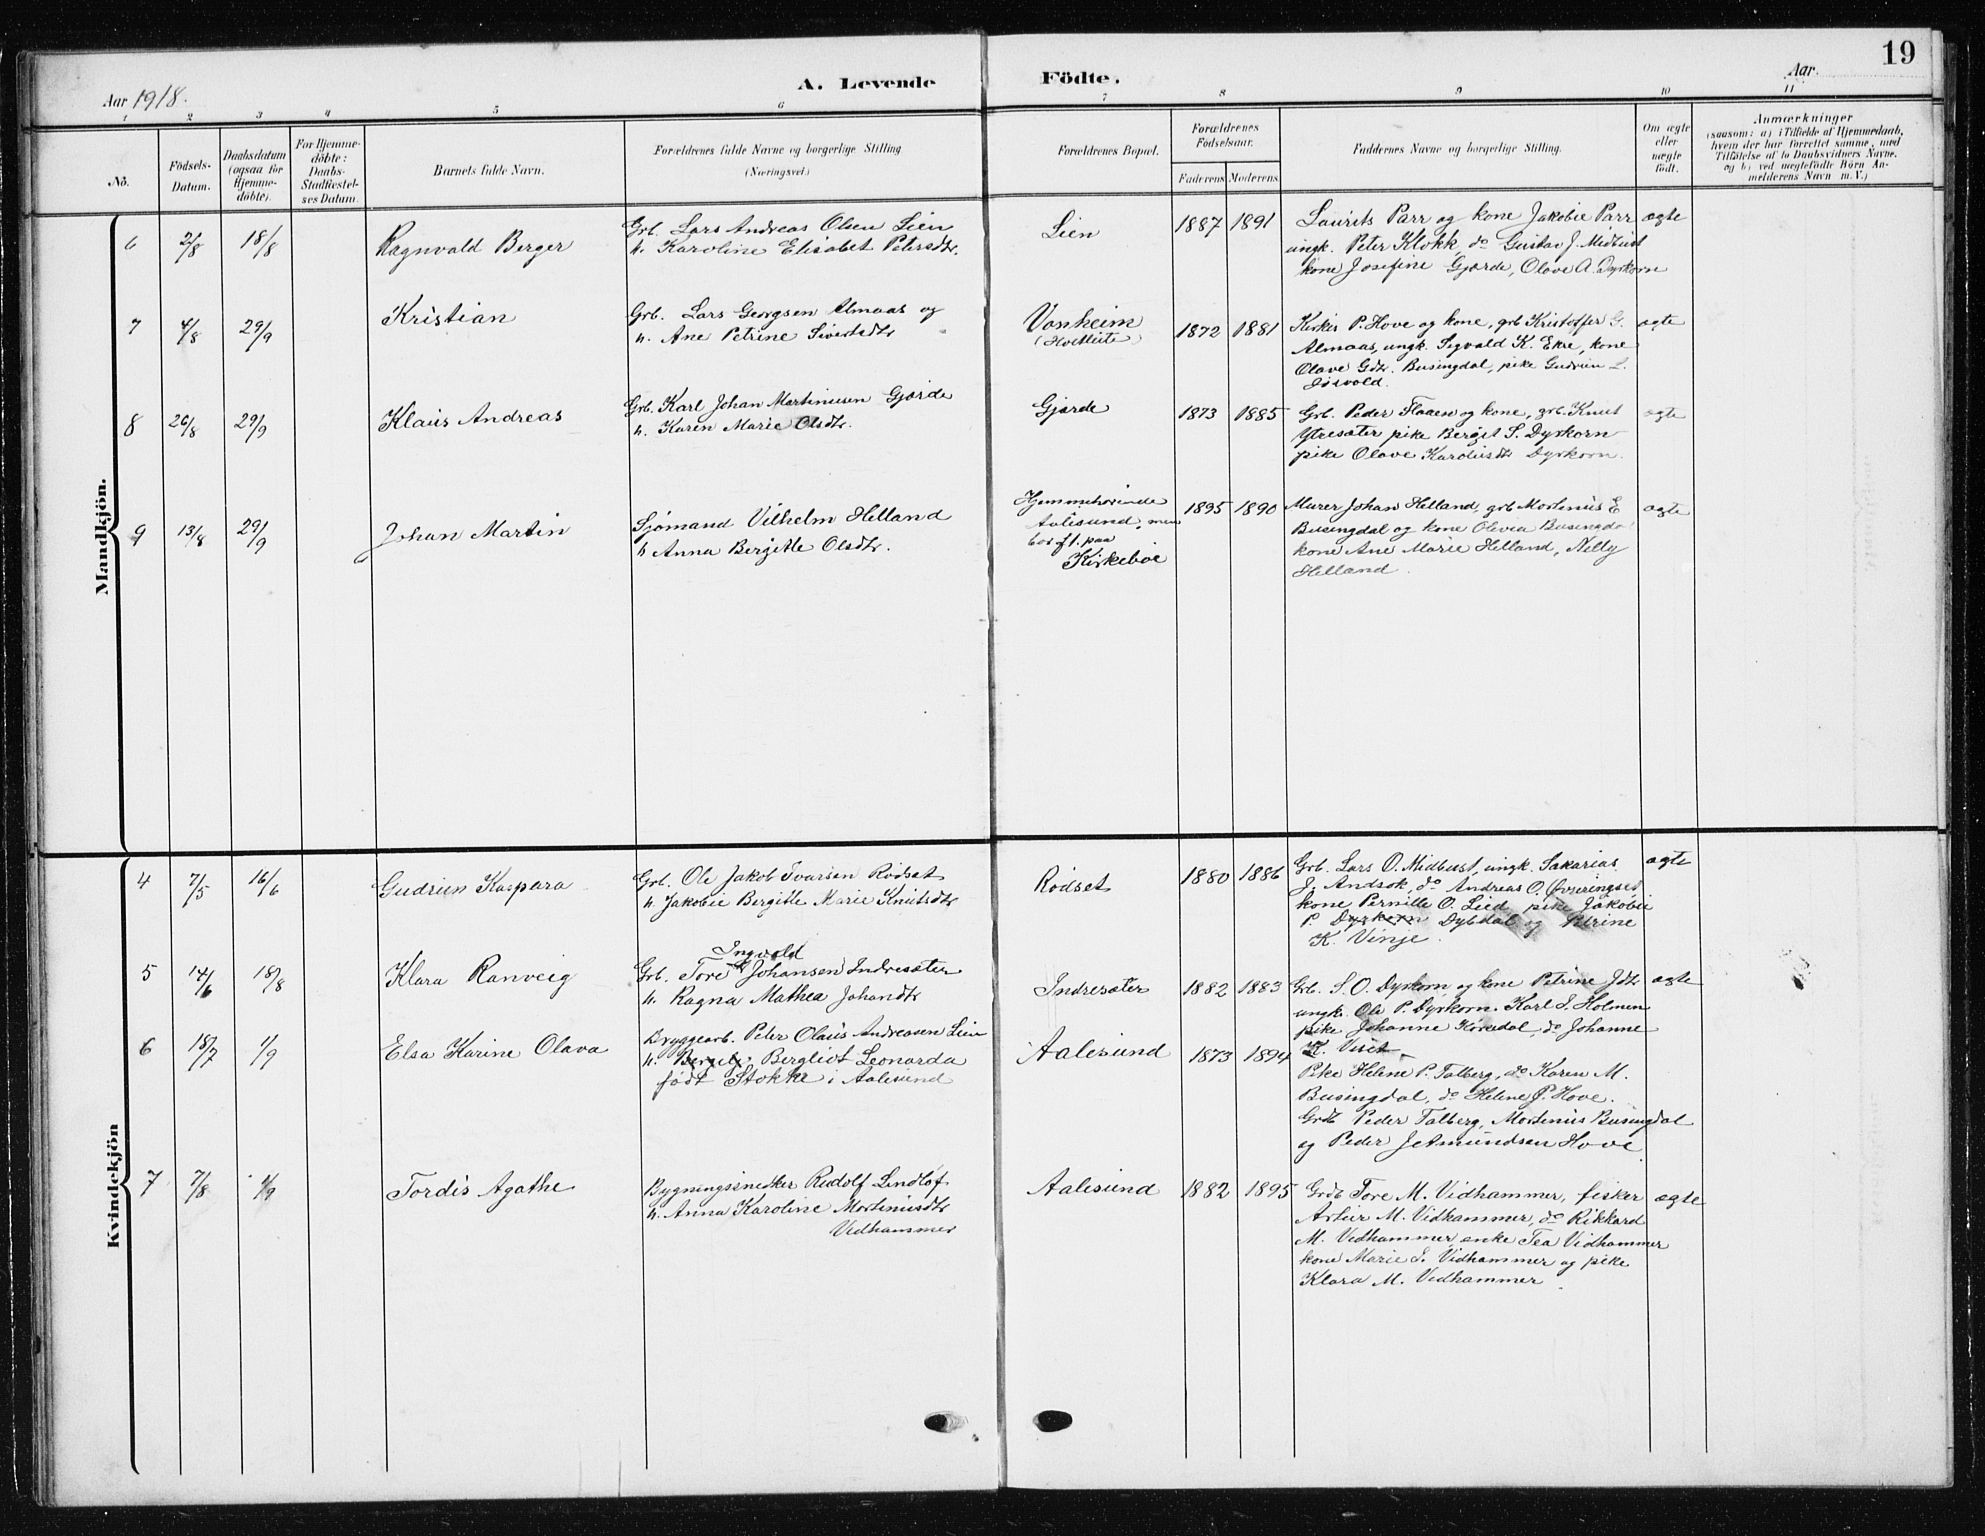 19
A. Levende Födte.
Aar 1918.
Aar
1 2 3 4 5 6 7 8 9 10 11
No.
Födsels-Datum.
Daabsdatum (ogsaa for Hjemme-döbte).
For Hjemme-döbte: Daabs-Stadfæstel-ses Datum.
Barnets fulde Navn.
Forældrenes fulde Navne og borgerlige Stilling (Næringsvei.)
Forældrenes Bopæl.
Forældrenes Födselsaar.
Faderens Moderens
Faddernes Navne og borgerlige Stilling.
Om ægte eller uægte födt.
Anmærkninger
(saasom: a) i Tilfælde af Hjemmedaab,
hvem der har forrettet samme, med
Tilföielse af to Daabsvidners Navne,
og b) ved uægtefödte Börn An-
melderens Navn m. V.)
Mandkjön.
6 2/8 18/8 Ragnvald Berger
Grb. Lars Andreas Olsen Lien
h. Karoline Elisabet Petersdtr.
Lien 1887 1891
Laurits Parr og kone Jakobie Parr
ungk. Peter Klokk, do Gustav J. Midtust
kone Josefine Gjærde, Olave A. Dyrkorn
ægte
7 4/8 29/9 Kristian
Grb. Lars Georgsen Almaas og
h. Ane Petrine Sivertsdtr
Vonheim
(Hvitleite)
1872 1881
Kirkes. P. Hove og kone, grb Kristoffer G.
Almaas, ungk. Sigvald K. Ekre, kone
Olave Gdtr. Busingdal, pike Gudrun L.
ægte
8 26/8 29/9 Klaus Andreas
Grb. Karl Johan Martinusen Gjærde
h. Karen Marie Olsdtr.
Gjærde 1873 1885
Grb. Peder Flaaen og kone, grb. Knut
Ytresæter pike Bergit S. Dyrkorn
pike Olave Karolusdtr Dyrkorn.
ægte
9 13/8 29/9 Johan Martin
Sjømand Vilhelm Helland
h Anna Bergitte Olsdtr.
Hjemmehørende
Aalesund, men
bor f.t. paa
Kirkebøe
1895 1890
Murer Johan Helland, grb Martinus E
Busingdal og kone Olivia Busingda
kone Ane Marie Helland, Nelly
Helland.
ægte
Kvindekjön
4 7/5 16/6 Gudrun Kaspara
Grb. Ole Jakob Ivarsen Rødset
h. Jakobie Bergitte Marie Knutsdtr
Rødset 1880 1886
Grb. Lars O. Midtust, ungk. Sakarias
J. Andsok, do Andreas O. Øvreringset
kone Pernille O. Lied, pike Jakobie
P. Dyrkorn Dybdal og Petrine
K. Vinje.
ægte
5 14/6 18/8 Klara Ranveig
Ingvald
Grb. Tore G Johansen Indresæter
h. Ragna Mathea Johandtr
Indresæter 1882 1883
Grb. S. O. Dyrkorn og kone Petrine Jdtr
ungk. Ole P. Dyrkorn. Karl S. Holmen
pike Johanne Korsdal, do Johanne
K. Viset
ægte
6 18/7 1/9 Elsa Karine Olava
Bryggearb. Peter Olaus Andreasen Lien
h. Bergliot Leonarda
født Stokke i Aalesund
Aalesund 1873 1894
Pike Helene P. Talberg, do Karen M.
Busingdal, do Helene P. Hove.
Grdb Peder Talberg, Martinus Busingdal
og Peder Jetmundsen Hove
7 7/8 1/9 Tordis Agathe
Bygningssnedker Rudolf Lindløf
h. Anna Karoline Martinusdtr
Vidhammer
Aalesund 1882 1895
Grdb Tore M. Vidhammer, fisker
Artur M. Vidhammer, do Rikkard
M. Vidhammer, enke Tea Vidhammer
kone Marie S. Vidhammer og pike
Klara M. Vidhammer
ægte